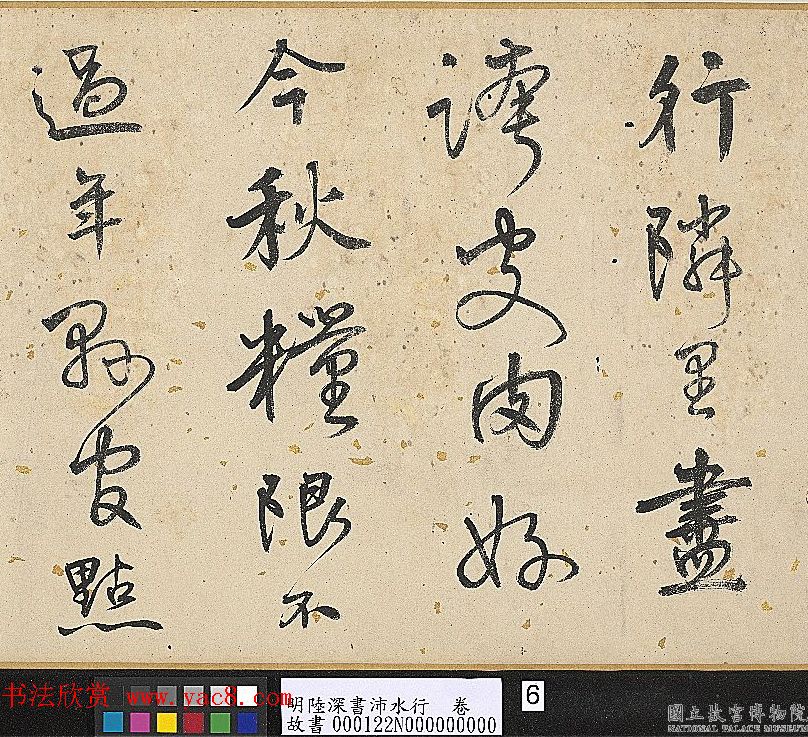 行隣里盡
誇皮肉好
今秋糧限不
過年縣官點
书法欣赏 www.yac8.com
明陸深書沛水行 卷
故書000122N000000000
6
國立故宮博物院
NATIONAL PALACE MUSEUM